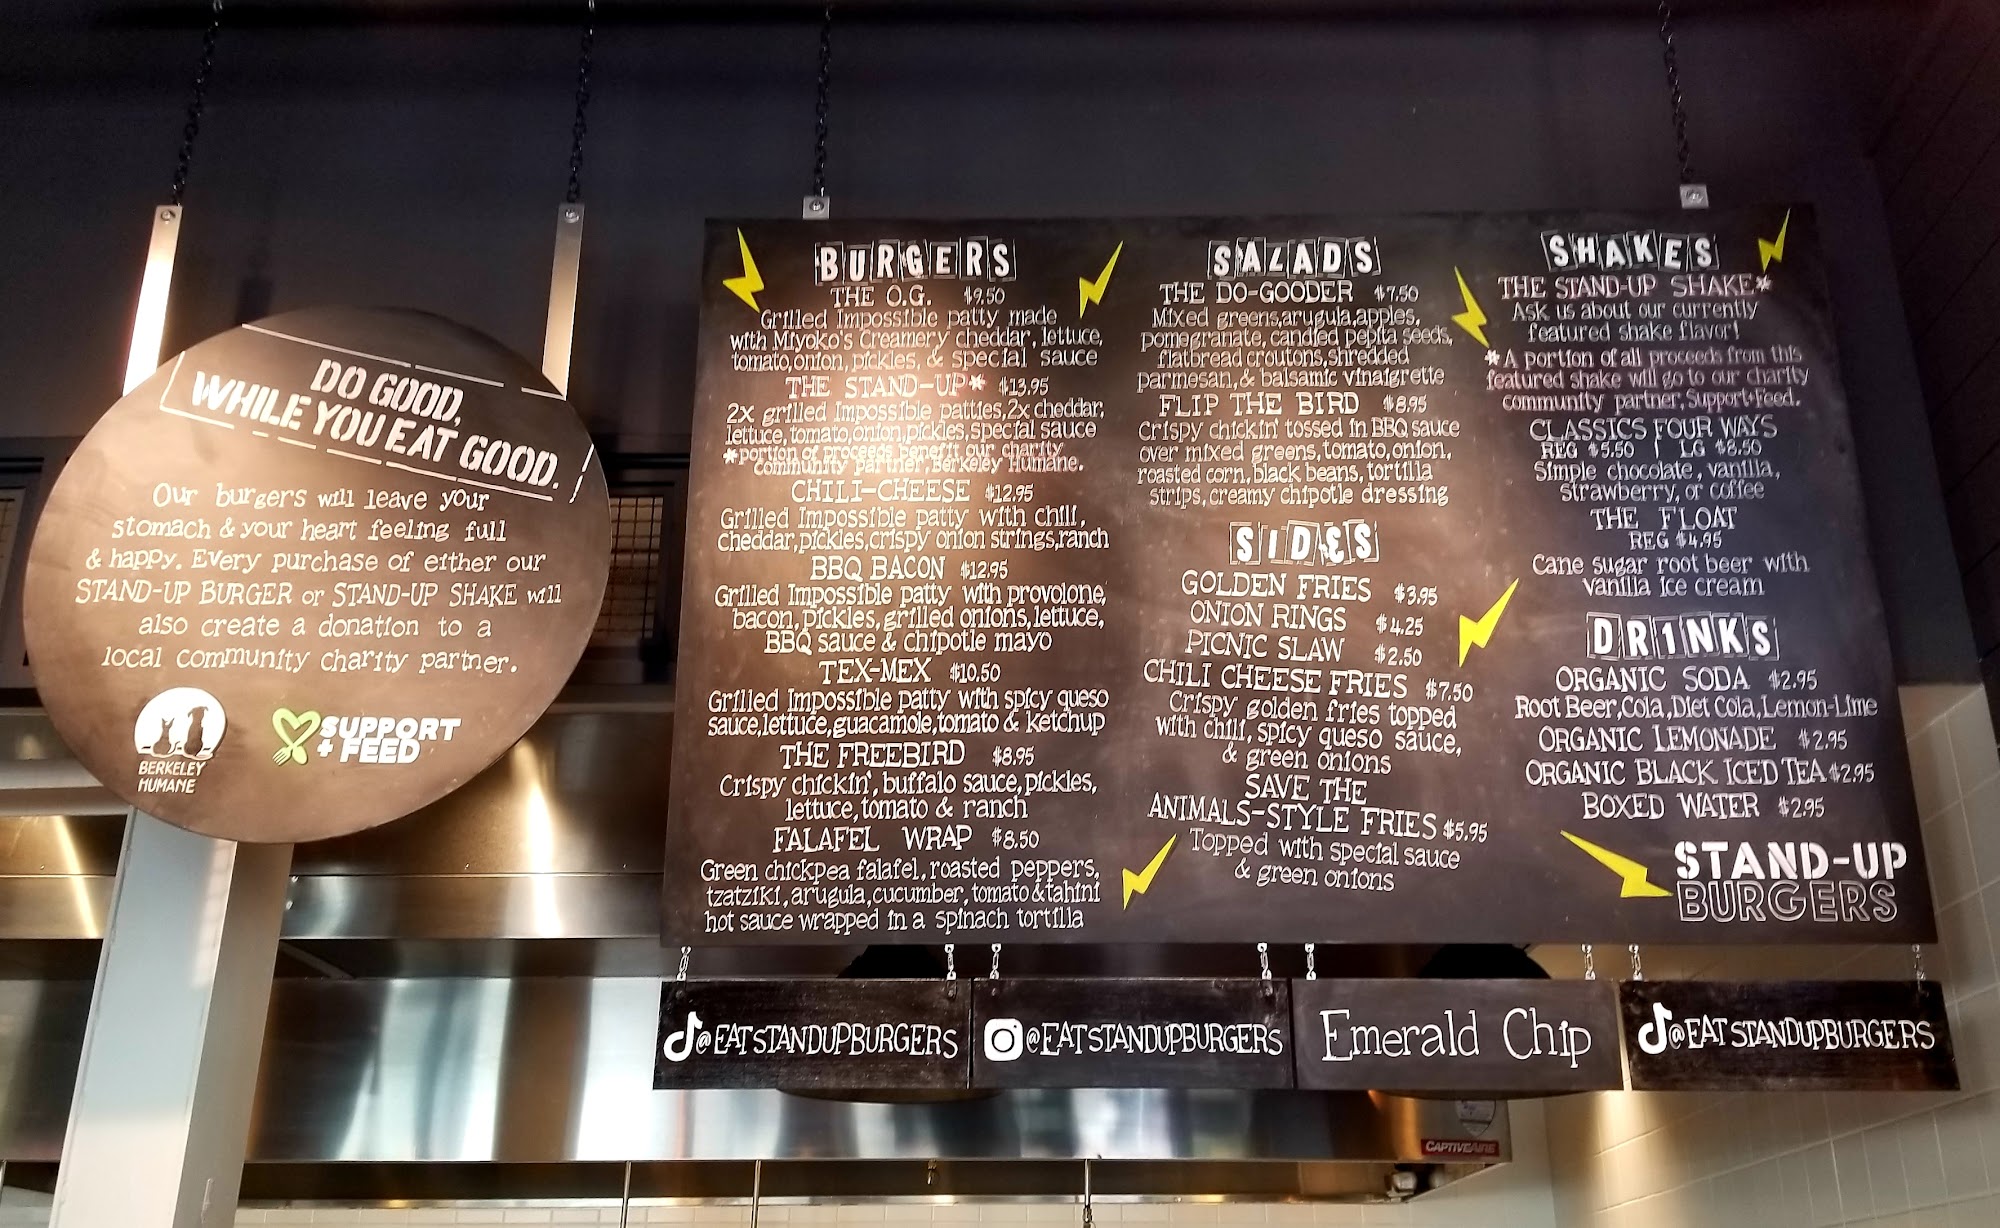 DO GOOD,
WHILE YOU EAT GOOD.
Our burgers will leave your
stomach & your heart feeling full
& happy. Every purchase of either our
STAND-UP BURGER or STAND-UP SHAKE will
also create a donation to a
local community charity partner.
BERKELEY
HUMANE
SUPPORT
+ FEED
BURGERS
THE O.G. $9.50
Grilled Impossible patty made
with Miyoko's Creamery cheddar, lettuce,
tomato, onion, pickles, & special sauce
THE STAND-UP* $13.95
2x grilled Impossible patties, 2x cheddar,
lettuce, tomato, onion, pickles, special sauce
*portion of proceeds benefit our charity
community partner, Berkeley Humane.
CHILI-CHEESE $12.95
Grilled Impossible patty with chili,
cheddar, pickles, crispy onion strings, ranch
BBQ BACON $12.95
Grilled Impossible patty with provolone,
bacon, pickles, grilled onions, lettuce,
BBQ sauce & chipotle mayo
TEX-MEX $10.50
Grilled Impossible patty with spicy queso
sauce, lettuce, guacamole, tomato & ketchup
THE FREEBIRD $8.95
Crispy chickin', buffalo sauce, pickles,
lettuce, tomato & ranch
FALAFEL WRAP $8.50
Green chickpea falafel, roasted peppers,
tzatziki, arugula, cucumber, tomato & tahini
hot sauce wrapped in a spinach tortilla
SALADS
THE DO-GOODER $7.50
Mixed greens, arugula, apples,
pomegranate, candied pepita seeds,
flatbread croutons, shredded
parmesan, & balsamic vinaigrette
FLIP THE BIRD $8.95
Crispy chickin' tossed in BBQ sauce
over mixed greens, tomato, onion,
roasted corn, black beans, tortilla
strips, creamy chipotle dressing
SIDES
GOLDEN FRIES $3.95
ONION RINGS $4.25
PICNIC SLAW $2.50
CHILI CHEESE FRIES $7.50
Crispy golden fries topped
with chili, spicy queso sauce,
& green onions
SAVE THE
ANIMALS-STYLE FRIES $5.95
Topped with special sauce
& green onions
SHAKES
THE STAND-UP SHAKE*
Ask us about our currently
featured shake flavor!
*A portion of all proceeds from this
featured shake will go to our charity
community partner, Support+Feed.
CLASSICS FOUR WAYS
REG $5.50 | LG $8.50
Simple chocolate, vanilla,
strawberry, or coffee
THE FLOAT
REG $4.95
Cane sugar root beer with
vanilla ice cream
DR1NKS
ORGANIC SODA $2.95
Root Beer, Cola, Diet Cola, Lemon-Lime
ORGANIC LEMONADE $2.95
ORGANIC BLACK ICED TEA $2.95
BOXED WATER $2.95
STAND-UP
BURGERS
@EATSTANDUPBURGERS
@EATSTANDUPBURGERS
Emerald Chip
@EATSTANDUPBURGERS
CAPTIVEAIRE